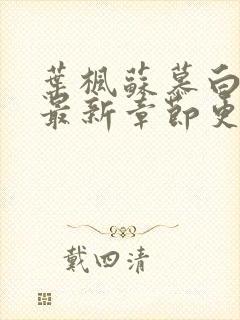 葉楓蘇慕白
最新章節更
戴四清